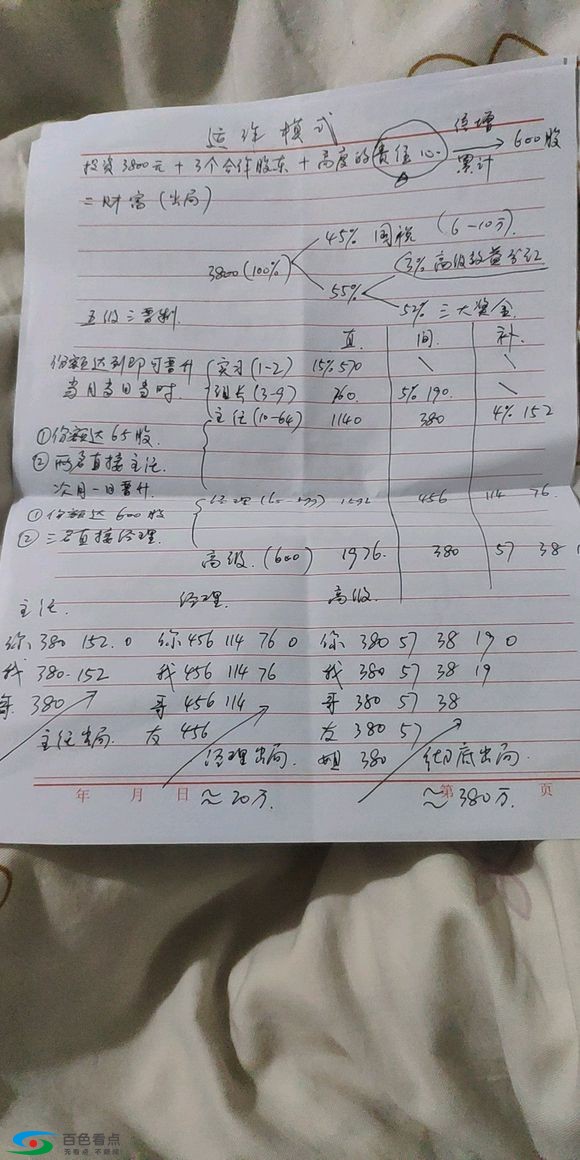 运作模式
投资3800元 + 3个合作股东 + 高度的责任心 倍增 累计 600股
= 财富(出局)
45% 国税 (6-10万)
3800(100%)
3% 高级效益分红
55%
52% 三大奖金
五级三晋制
直 间 补
份额达到即可晋升 实习(1-2) 15% 570 \ \
当月当日当时 组长(3-9) 760 5% 190 \
主任(10-64) 1140 380 4% 152
①份额达65股
②两名直接主任
次月一日晋升
经理 456 114 76
①份额达600股
②三名直接经理
高级 (600) 1976 380 57 38
主任 经理 高级
你 380 152 0 你 456 114 76 0 你 380 57 38 19 0
我 380 152 我 456 114 76 我 380 57 38 19
哥 380 哥 456 114 哥 380 57 38
主任出局 友 456 友 380 57
经理出局 姐 380 彻底出局
年 月 日 ≈20万 ≈380万 第 页
百色看点